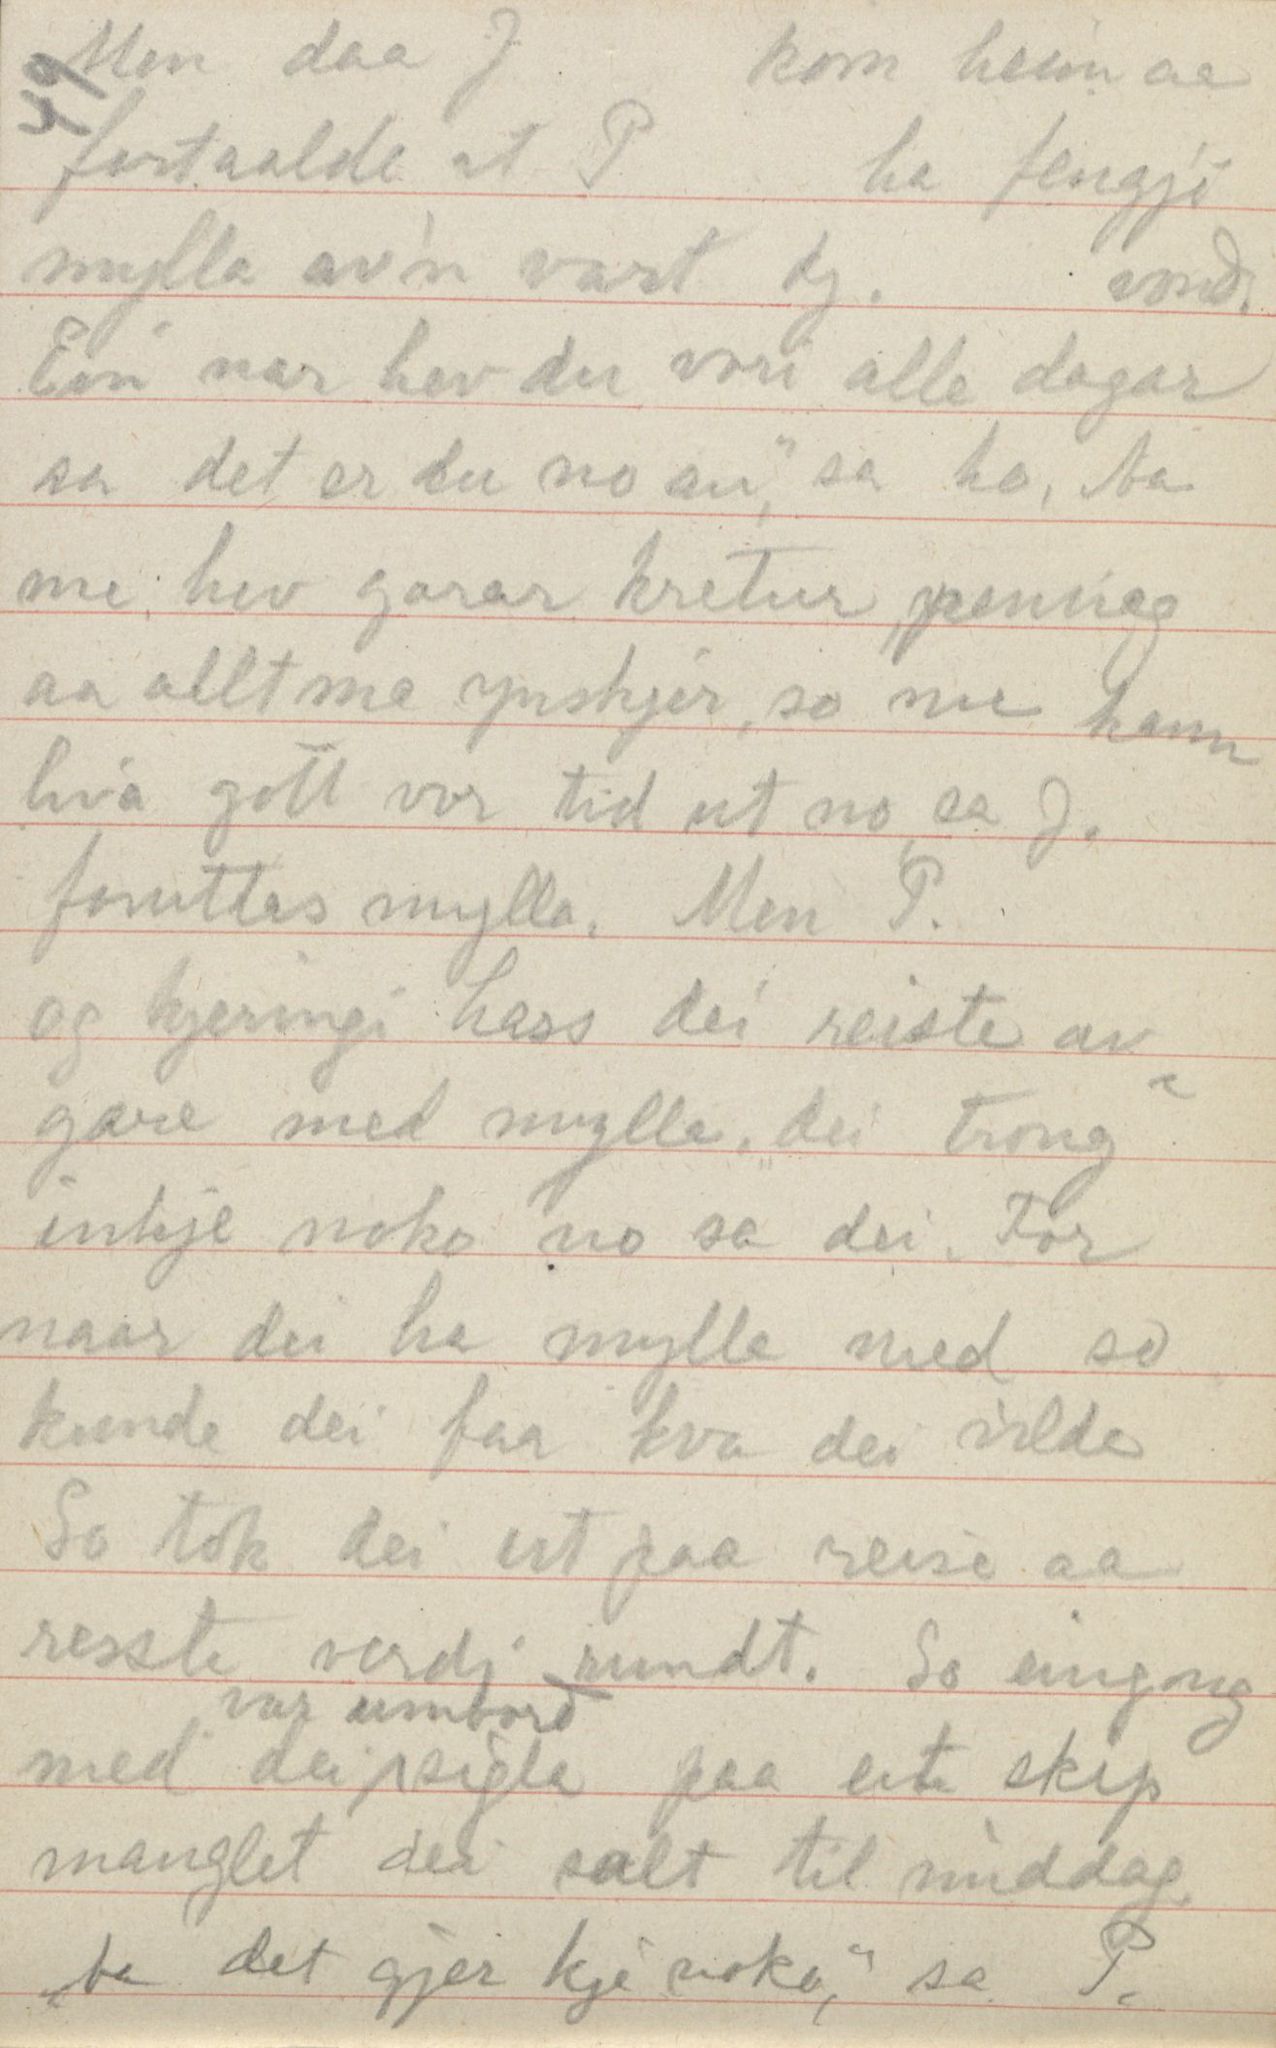 49
Men daa J kom heim aa
fortaalde at P ha fengji
mylla av'n vart kj. vond.
Ein nar hev du vori alle dagar
sa det er du no au," sa ho, ba
me hev garar kretur pening
aa allt me ynskjer, so me kann
liva gott vor tid ut no, sa J.
foruttas mylla. Men P.
og kjeringi hass dei reiste av-
gare med mylla, "dei trong
inkje noko no sa dei. For
naar dei ha mylla med so
kunde dei faa kva dei vilde
So tok dei ut paa reise aa
resste verdi rundt. So eingong
var umbord
med dei sigla paa eit skip
manglet dei salt til middag
"ba det gjer kje noko," sa P.